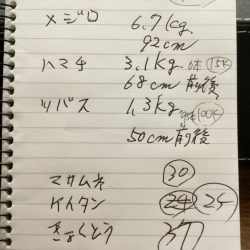 メジロ 6.7kg.
92cm
ハマチ 3.1kg. 6本 15K
68cm 前後
ツバス 1.3kg 100K
50cm前後
マサムネ 30
ケイタン 24 24
きょくとう 37